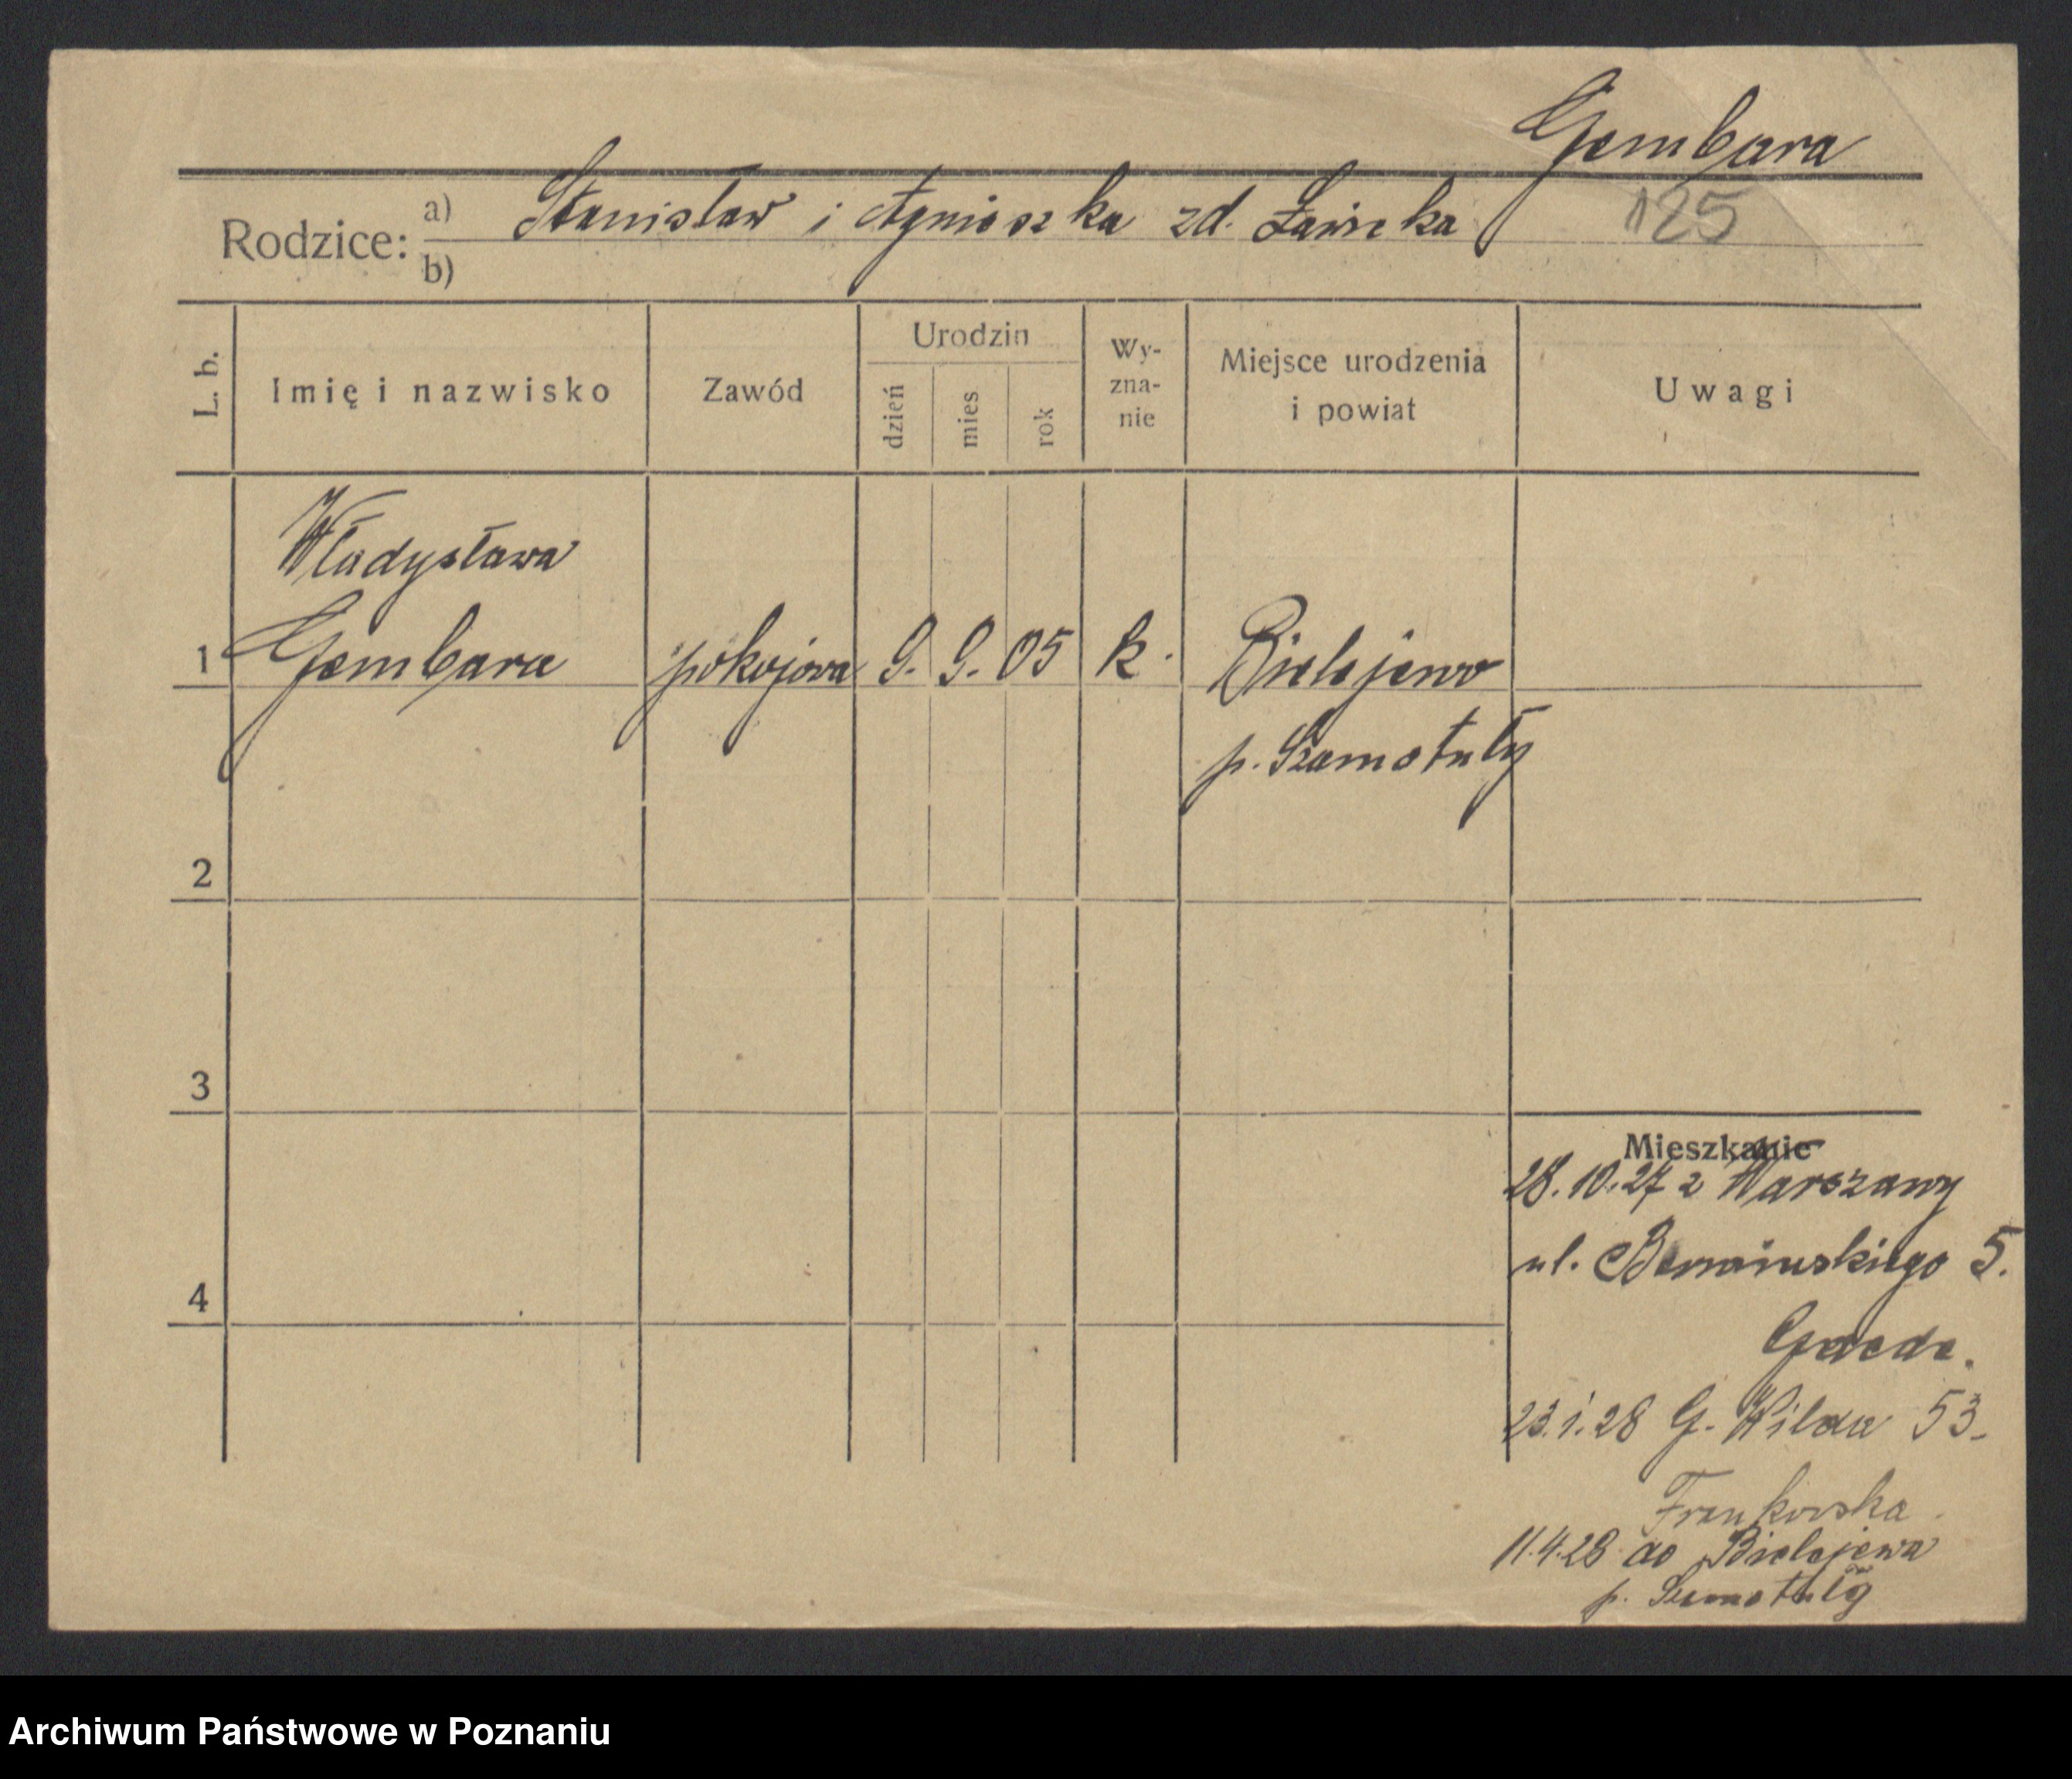 Gembara
125
Rodzice: a) Stanisław i Agnieszka zd. Ławicka
b)
L. b.
Imię i nazwisko
Zawód
Urodzin
dzień
mies
rok
Wy-
zna-
nie
Miejsce urodzenia
i powiat
Uwagi
Władysława
1 Gembara pokojowa 9. 9. 05 k. Bielejewo
p. Szamotuły
2
3
4
Mieszkanie
28.10.27 z Warszawy
ul. 5.
Gaede.
23.1.28 G. Wilda 53
Frankowska
11.4.28 do Bielejewa
p. Szamotuły
Archiwum Państwowe w Poznaniu